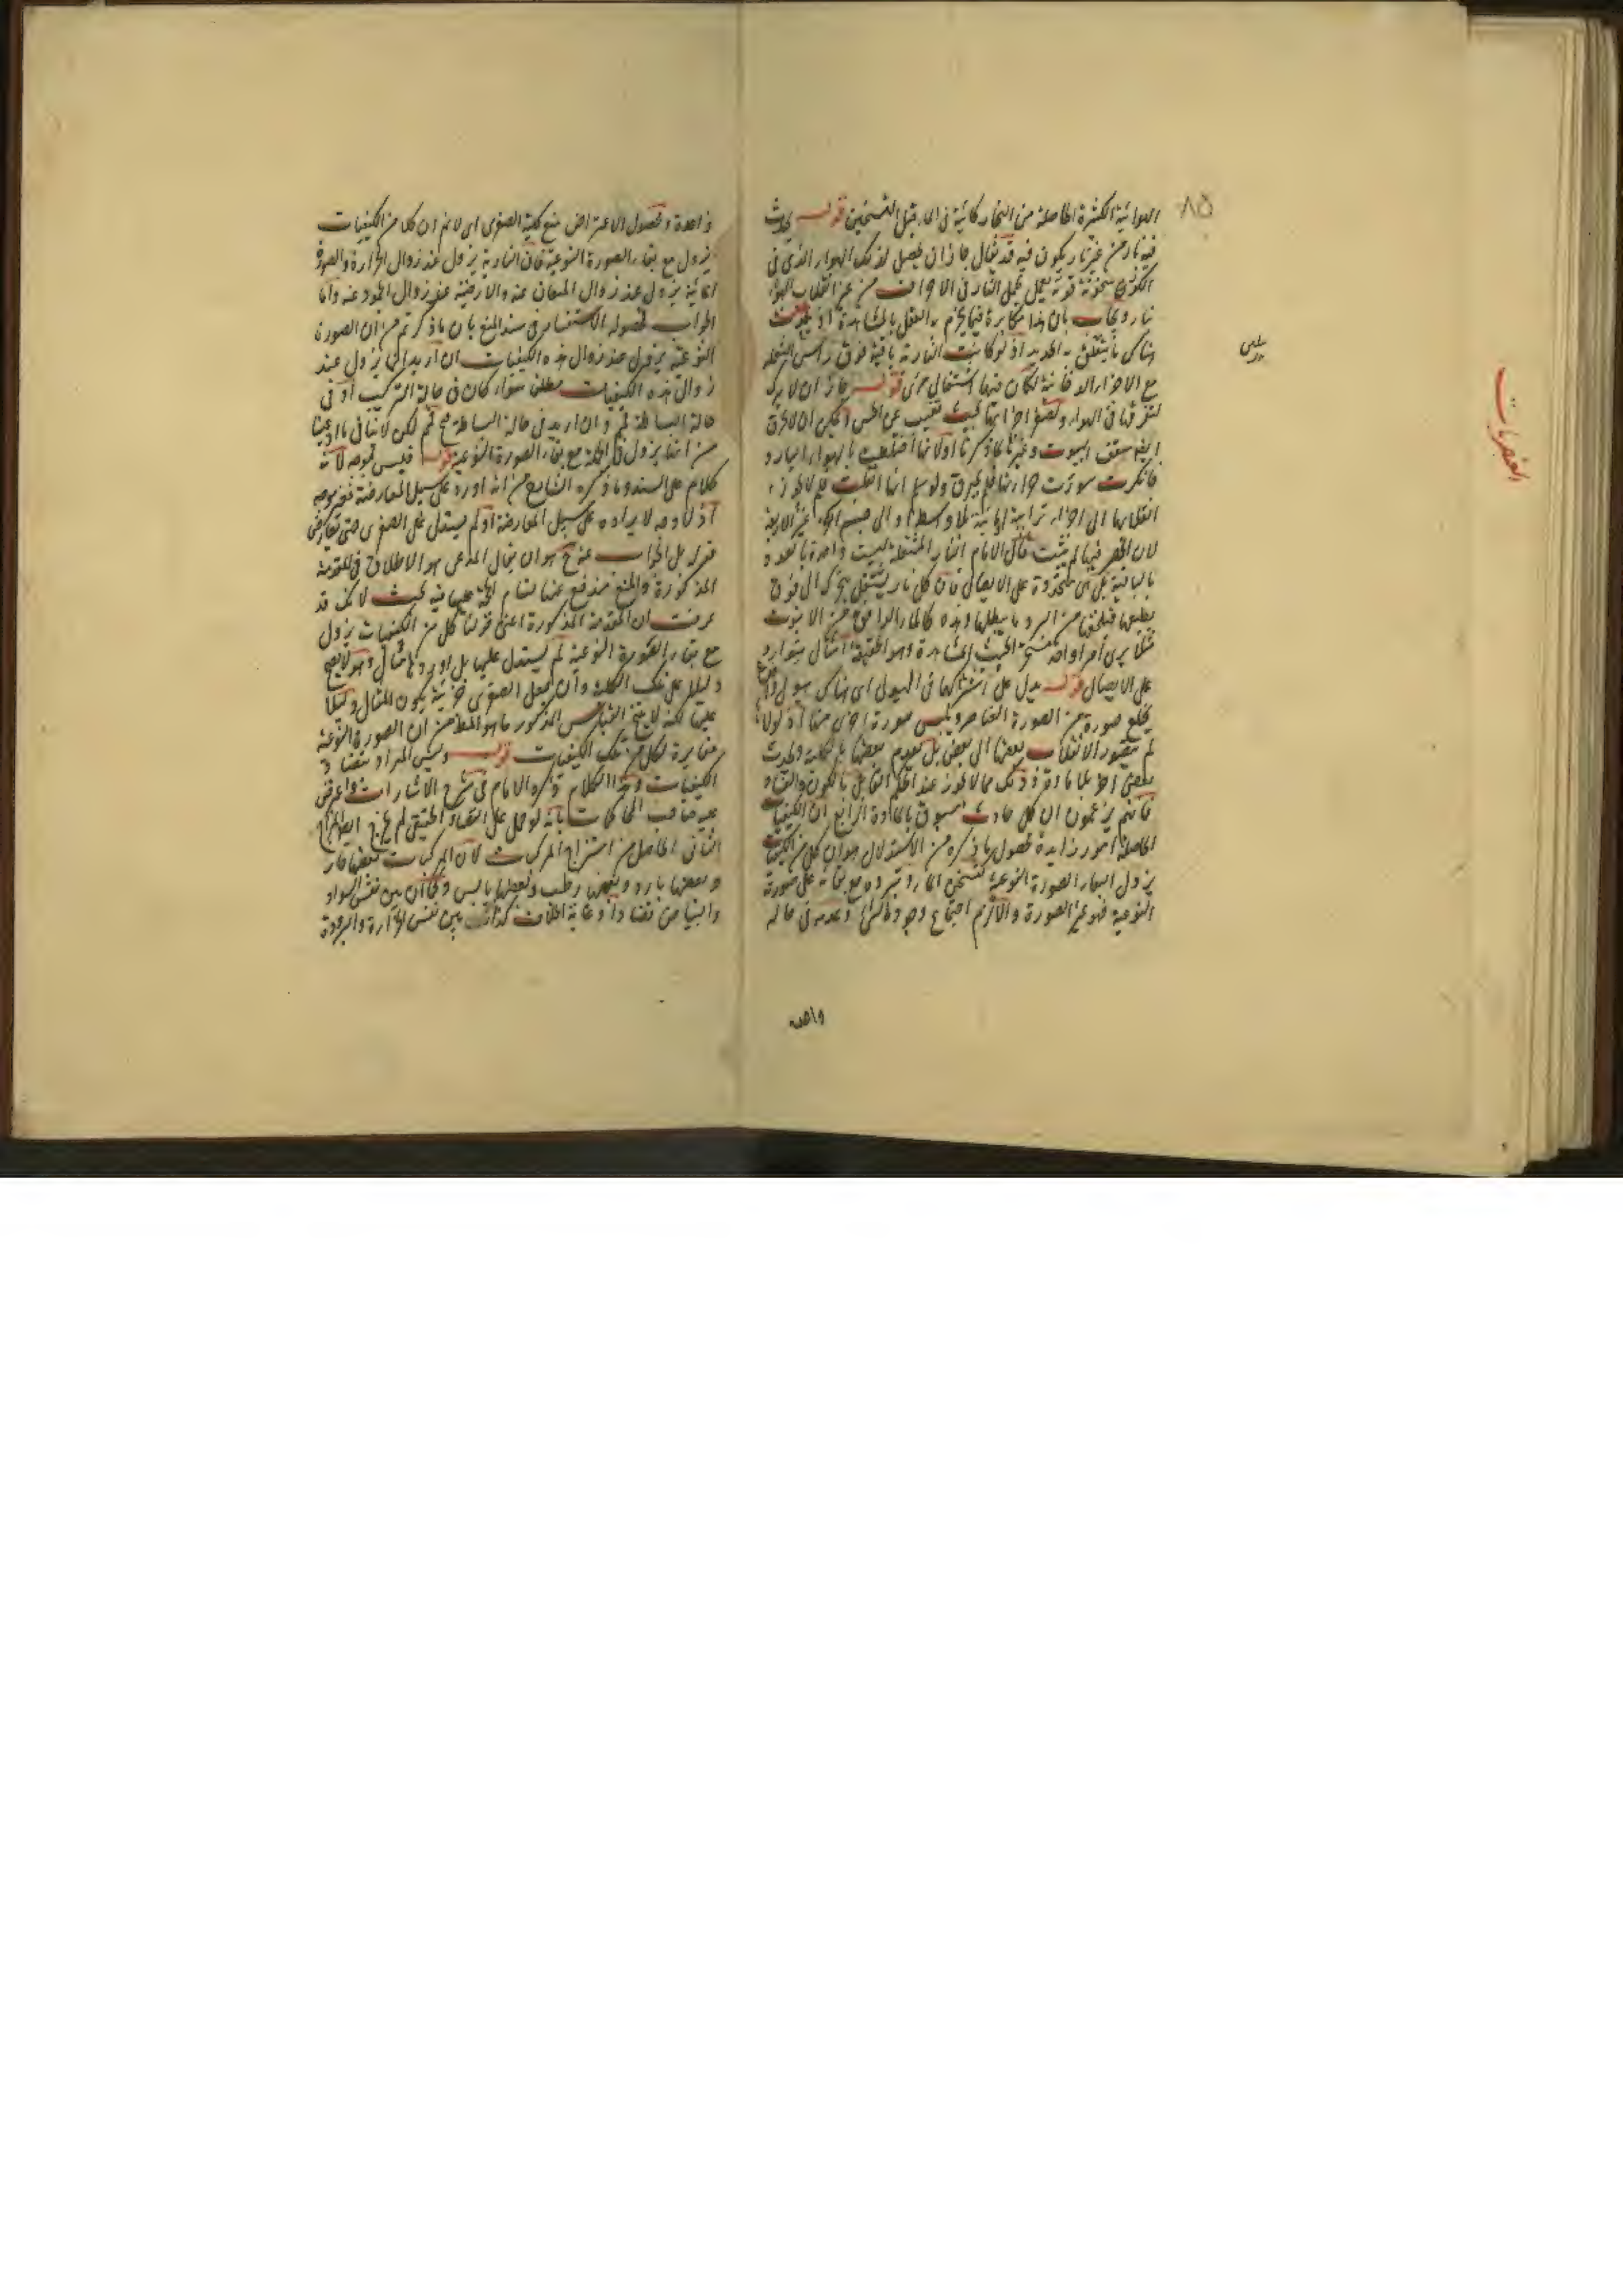 ٨٥
الهوائية الكثيرة الحاصلة من البخار كائنة في الماء قبل التسخين قوله يحدث
فيه نار من غير نار يكون فيه قد يقال جاز ان يحصل لذلك الهواء الذي في
الكور سخونة قوية يعمل عمل النار في الاحراق من غير انقلاب الهواء
نارا ويجاب بان هذا مكابرة فيما يجزم به العقل بالمشاهدة اذ يحدث
هناك ما يتعلق به الحديد اذ لو كانت النارية باقية فوق رأس الشعلة
مع الاجزاء الدخانية لكان فيها اشتعال مرئي قوله جاز ان لا يدرك
لتفرقها في الهواء وتصغر اجزائها بحيث تغيب عن الحس
ايضا سقف البيوت وغيرها لما ذكرنا او لانها اختلطت بالهواء البارد
فانكسرت سورة حرارتها فلم يحرق ولو سلم انها انقلبت فلم لا يجوز
انقلابها الى اجزاء ترابية او مائية بلا وسط او الى جسم اخر غير الاربعة
لان الحصر فيها لم يثبت قال الامام النار المشتعلة ليست واحدة بالعدد
باقية بل هي متجددة على الاتصال فان كل نار يشتعل يتحرك الى فوق
مثلا يرى امرا واحدا بحسب المشاهدة وهو بالحقيقة امثال يتوارد
على الاتصال قوله يدل على اشتراكها في الهيولى اي هناك هيولى واحدة
يخلع صورة من الصورة العناصر ويلبس صورة اخرى منها اذ لولاها
لم يتصور الانقلاب بعضها الى بعض بل يعدم بعضها بالكلية ويحدث
بعض اخر بلا مادة وذلك مما لا يجوز عند الحكم القائل بالكون والفساد
فانهم يزعمون ان كل حادث مسبوق بالمادة الرابع ان الكيفيات
الحاصلة امور زايدة محصول ما ذكره من الاستدلال هو ان كل من الكيفيات
يزول مع بقاء الصورة النوعية لتسخن الماء وتبرده مع بقائه على صورته
النوعية فهو غير الصورة والا لزم اجتماع وجود الشئ وعدمه في حالة
واحدة
العنصريات
واحدة ومحصول الاعتراض منع كلية الصغرى اي لا نم ان كلا من الكيفيات
يزول مع بقاء الصورة النوعية فان النارية يزول عند زوال الحرارة والصورة
المائية يزول عند زوال الميعان عنه والارضية عند زوال الجمود عنه واما
الجواب فمحصوله الاستفسار في سند المنع بان ما ذكرتم من ان الصورة
النوعية يزول عند زوال هذه الكيفيات ان اريد انها يزول عند
زوال هذه الكيفيات مطلقا سواء كان في حالة التركيب او في
حالة البساطة فمم وان اريد في حالة البساطة فمسلم لكن لا ينافي ما ادعينا
من انها يزول في الجملة مع بقاء الصورة النوعية قوله فليس بموجه لانه
كلام على السند وما ذكره الشارح من انه اورده على سبيل المعارضة فغير موجه
اذ لا وجه لايراده على سبيل المعارضة اذ لم يستدل على الصغرى حتى يعارض
قوله بل الجواب عنه ح هو ان يقال المدعى هو الاطلاق في المقدمة
المذكورة والمنع مندفع عنها لتمام الحجة عليها فيه بحث لانك قد
عرفت ان المقدمة المذكورة اعني قولنا كل من الكيفيات يزول
مع بقاء الصورة النوعية لم يستدل عليها بل اورد لها مثال وهو لا يصح
دليلا على تلك الكلية وان جعل الصغرى جزئية يكون المثال دليلا
عليها لكنه لا ينتج القياس المذكور ما هو المط من ان الصورة النوعية
مغايرة لكل من تلك الكيفيات قوله وليس المراد بتضاد
الكيفيات وهذا الكلام ذكره الامام في شرح الاشارات واعترض
عليه صاحب المحاكمات بانه لو حمل على التضاد الحقيقي لم يخرج ايضا المزاج
الثاني الحاصل من امتزاج المركبات لان المركبات بعضها حار
وبعضها بارد وبعض رطب وبعضها يابس وكما ان بين نفس السواد
والبياض تضادا وغاية الخلاف كذلك بين نفس الحرارة والبرودة